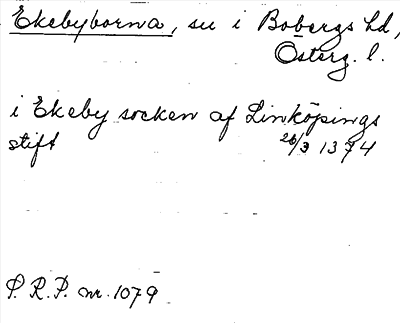 Ekebyborna, sn i Bobergs hd,
Österg. l.
i Ekeby socken af Linköpings
stift 26/3 1374
P. R. P. nr. 1079